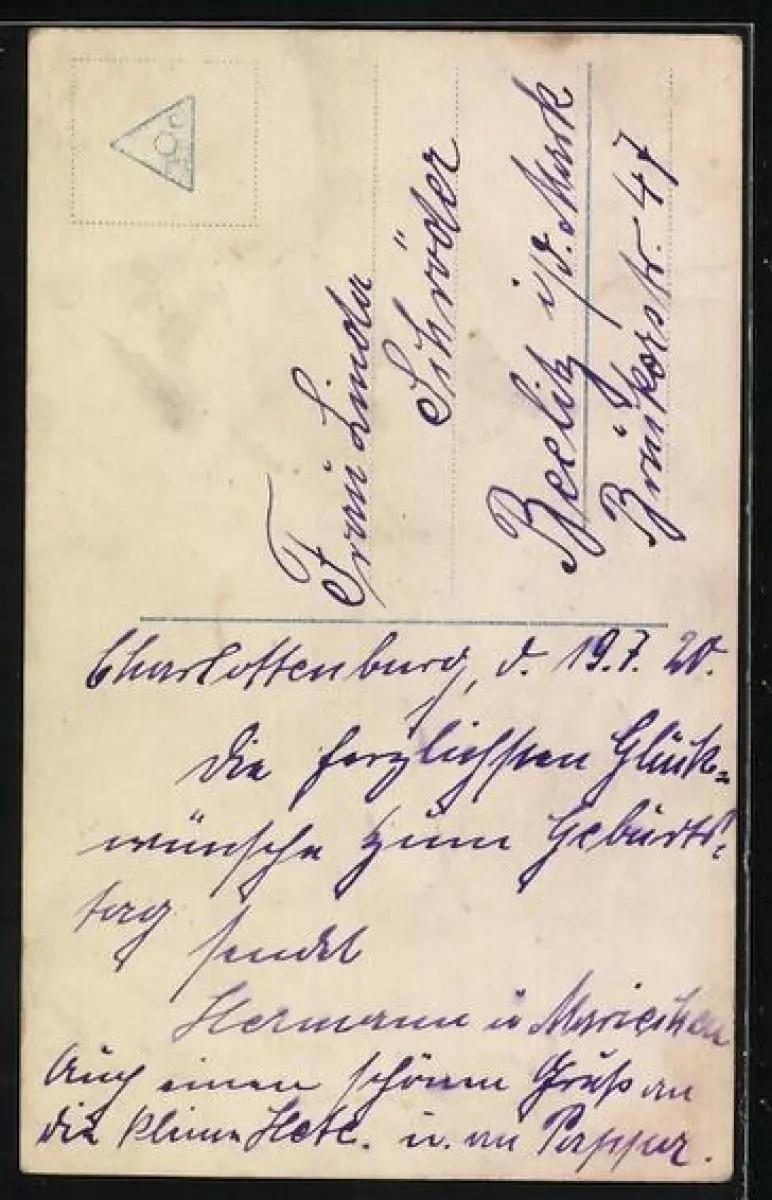 Frau Linda
Schröder
Beelitz i/d. Mark
Brückerstr. 47
Charlottenburg, d. 19.7.20.
Die herzlichsten Glück-
wünsche zum Geburts-
tag sendet
Hermann u Mariechen
Auch einen schönen Gruß an
die kleine u. an